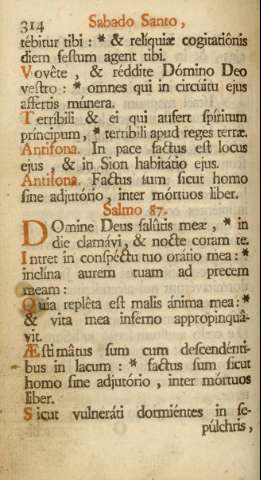 314 Sabado Santo,
tébitur tibi : * & relíquiæ cogitatiônis
diem festum agent tibi.
Vovête , & réddite Dómino Deo
vestro : * omnes qui in circúitu ejus
affertis múnera.
Terríbili & ei qui aufert spíritum
príncipum, * terríbili apud reges terræ.
Antifona. In pace factus est locus
ejus , & in Sion habitátio ejus.
Antifona. Factus sum sicut homo
sine adjutório, inter mórtuos liber.
Salmo 87.
DOmine Deus salûtis meæ , * in
die clamávi, & nocte coram te.
Intret in conspéctu tuo orátio mea : *
inclína aurem tuam ad precem
meam :
Quia replêta est malis ánima mea : *
& vita mea inferno appropinquâ-
vit.
Æstimâtus sum cum descendénti-
bus in lacum : * factus sum sicut
homo sine adjutório , inter mórtuos
liber.
Sicut vulneráti dormiéntes in se-
púlchris ,